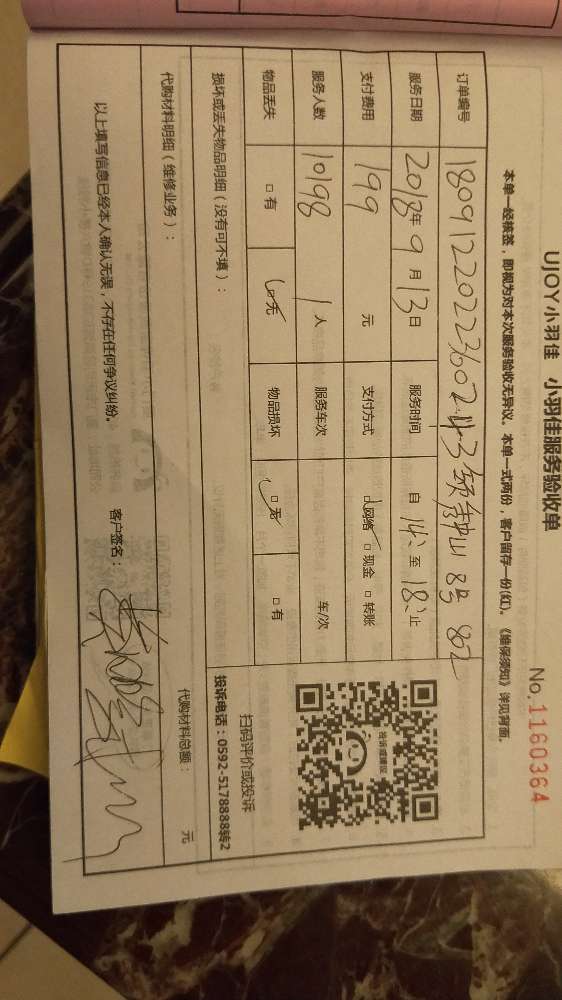 UJOY小羽佳 小羽佳服务验收单
No.1160364
本单一经核签，即视为对本次服务验收无异议。本单一式两份，客户留存一份(红)。《维保须知》详见背面。
订单编号 18091220223602 8号 802
服务日期 2018年9月13日 服务时间 自14:至18:止
支付费用 199 元 支付方式 □网络 □现金 □转账
服务人数 10198 1人 服务车次 车/次
物品丢失 □有 □无 物品损坏 □无 □有
损坏或丢失物品明细（没有可不填）：
扫码评价或投诉
投诉电话：0592-5178888转2
代购材料明细（维修业务）：
代购材料总额： 元
以上填写信息已经本人确认无误，不存在任何争议纠纷。
客户签名：